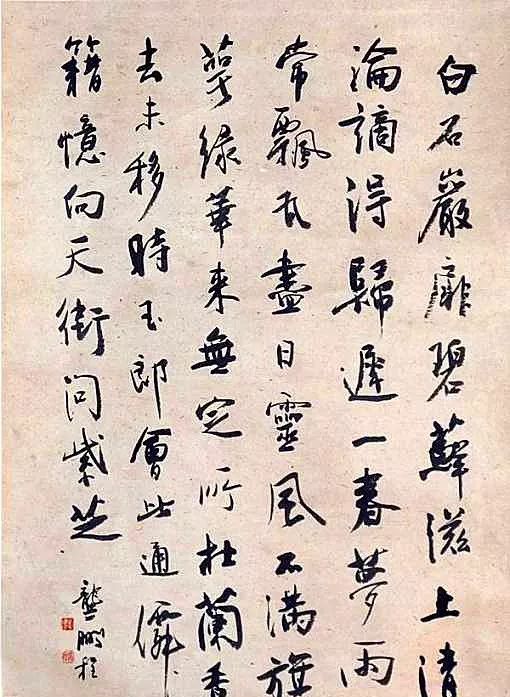 白石巖扉碧蘚滋上清
淪謫得歸遲一春夢雨
常飄瓦盡日靈風不滿旗
萼緑華来無定所杜蘭香
去未移時玉郎會此通僊
籍憶向天街問紫芝
龔鵬程